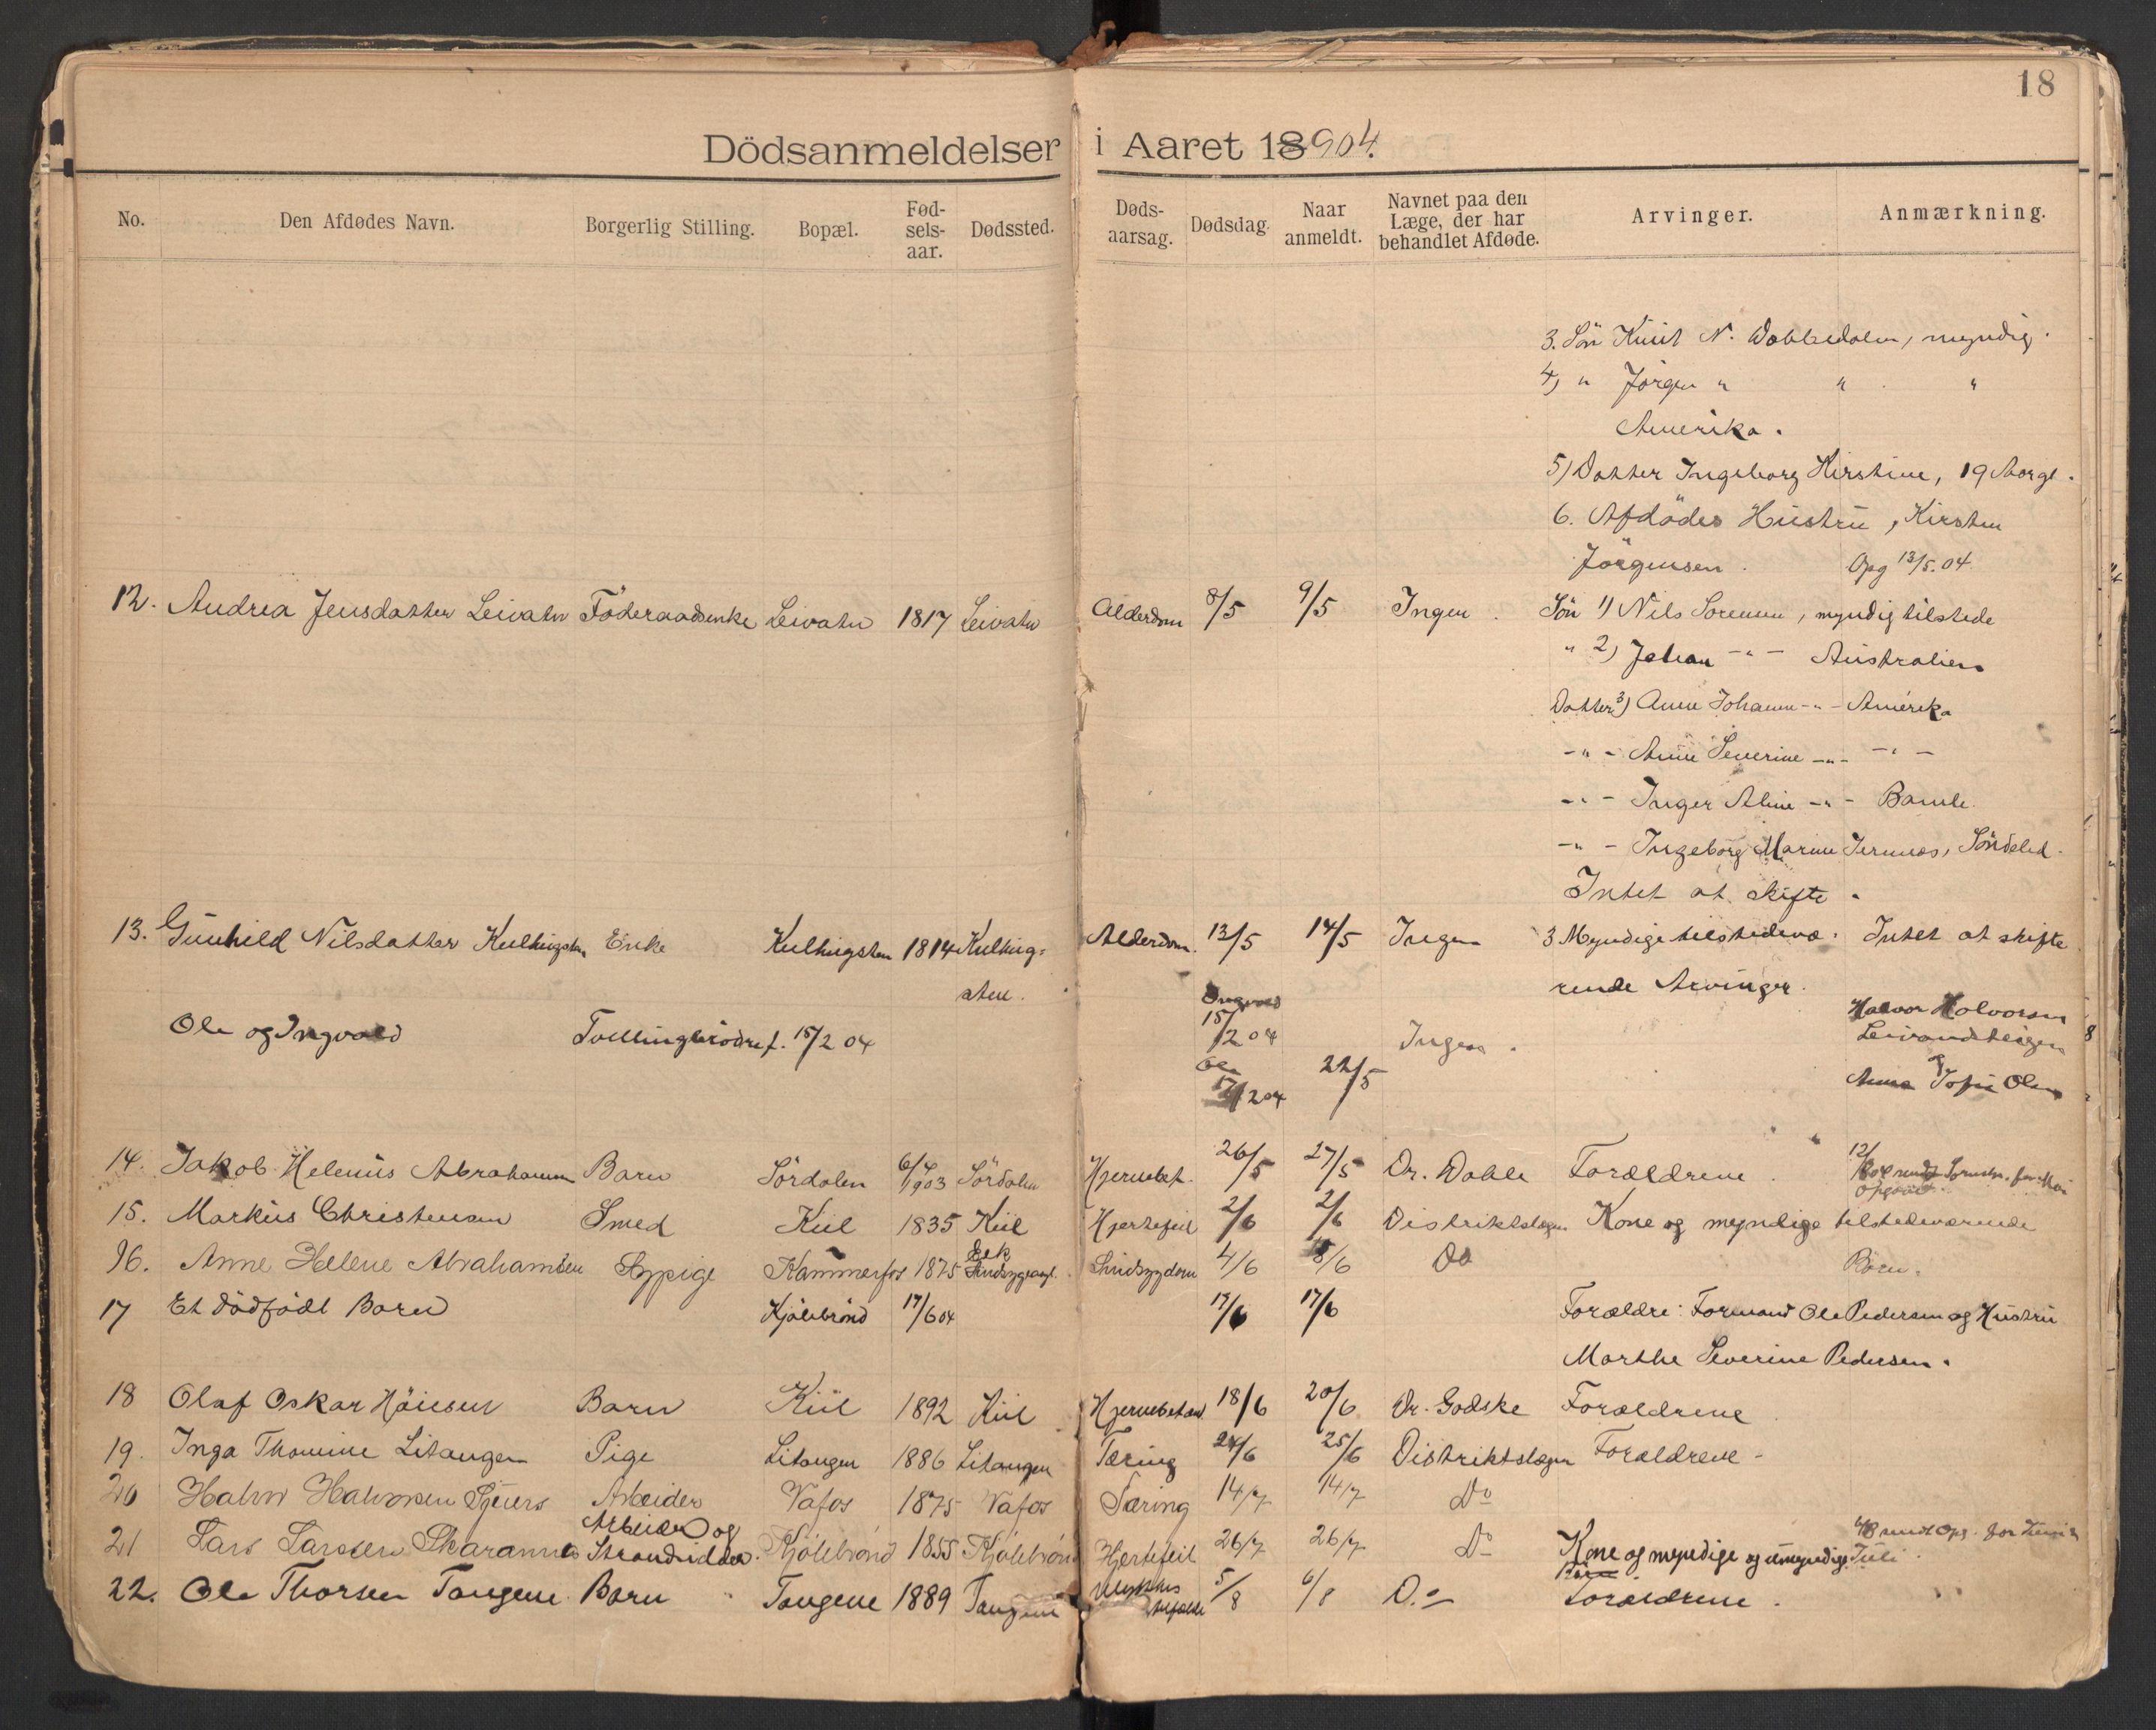 18
Dödsanmeldelser i Aaret 18904.
No. Den Afdødes Navn. Borgerlig Stilling. Bopæl. Fød-sels-aar. Dødssted. Døds-aarsag. Dødsdag. Naar anmeldt. Navnet paa den Læge, der har behandlet Afdøde. Arvinger. Anmærkning.
3. Sön Knut N. Dobbedalen, myndig.
4) " Jörgen " " "
Amerika.
5) Datter Ingeborg Kirstine, 19 Aar gl.
6. Afdödes Hustru, Kirsten
Jörgensen. Opg 13/5.04.
12. Andrea Jensdatter Leivatn Föderaadsenke Leivatn 1817 Leivatn Alderdom 8/5 9/5 Ingen. Sön 1) Nils Sorensen, myndig tilstede
" 2) Johan -"- Australien
Datter 3) Anne Johanne -"- Amerika
-"- Anne Severine -"- -"-
-"- Inger Aline -"- Bamle.
-"- Ingeborg Marine Söndeled.
Intet at skifte.
13. Gunhild Nilsdatter Enke 1814 Alderdom. 13/5 14/5 Ingen 3 Myndige tilstedevæ- Intet at skifte
rende Arvinger.
Ole og Ingvald Tvillingbrödre f. 15/2 04 Ingvald 15/2 04 Ingen. Halvor Halvorsen
Ole 17/2 04 22/5 og Anna Sofie Olsen
14. Jakob Helenius Abrahamsen Barn Sördalen 6/4 1903 Sördalen Hjernebet. 26/5 27/5 Dr. Dahle Forældrene.
15. Markus Christensen Smed Kiil 1835 Kiil Hjertefeil 2/6 2/6 Distriktslægen Kone og myndige tilstedeværende
16. Anne Helene Abrahamsen Sypige Kammerfos 1875 Eek Sindssygeasyl. Sindssygdom 4/6 8/6 Do Börn.
17 Et dödfödt Barn Kjölebrönd 17/6 04 17/6 17/6 Forældre: Formand Ole Pedersen og Hustru
Marthe Severine Pedersen.
18 Olaf Oskar Höiesen Barn Kiil 1892 Kiil Hjernebetæn. 18/6 20/6 Dr. Godske Forældrene
19. Inga Thomine Litangen Pige Litangen 1886 Litangen Tæring 24/6 25/6 Distriktslægen Forældrene -
20 Halvor Halvorsen Arbeider Vafos 1875 Vafos Tæring 14/7 14/7 Do
21 Lars Larssen Skarannes Arbeider og Strandsidder. Kjölebrönd 1855 Kjölebrönd Hjertefeil 26/7 26/7 Do Kone og myndige og umyndige Börn
22. Ole Thorsen Tangene Barn Tangene 1889 Tangene 5/8 6/8 Do Forældrene.